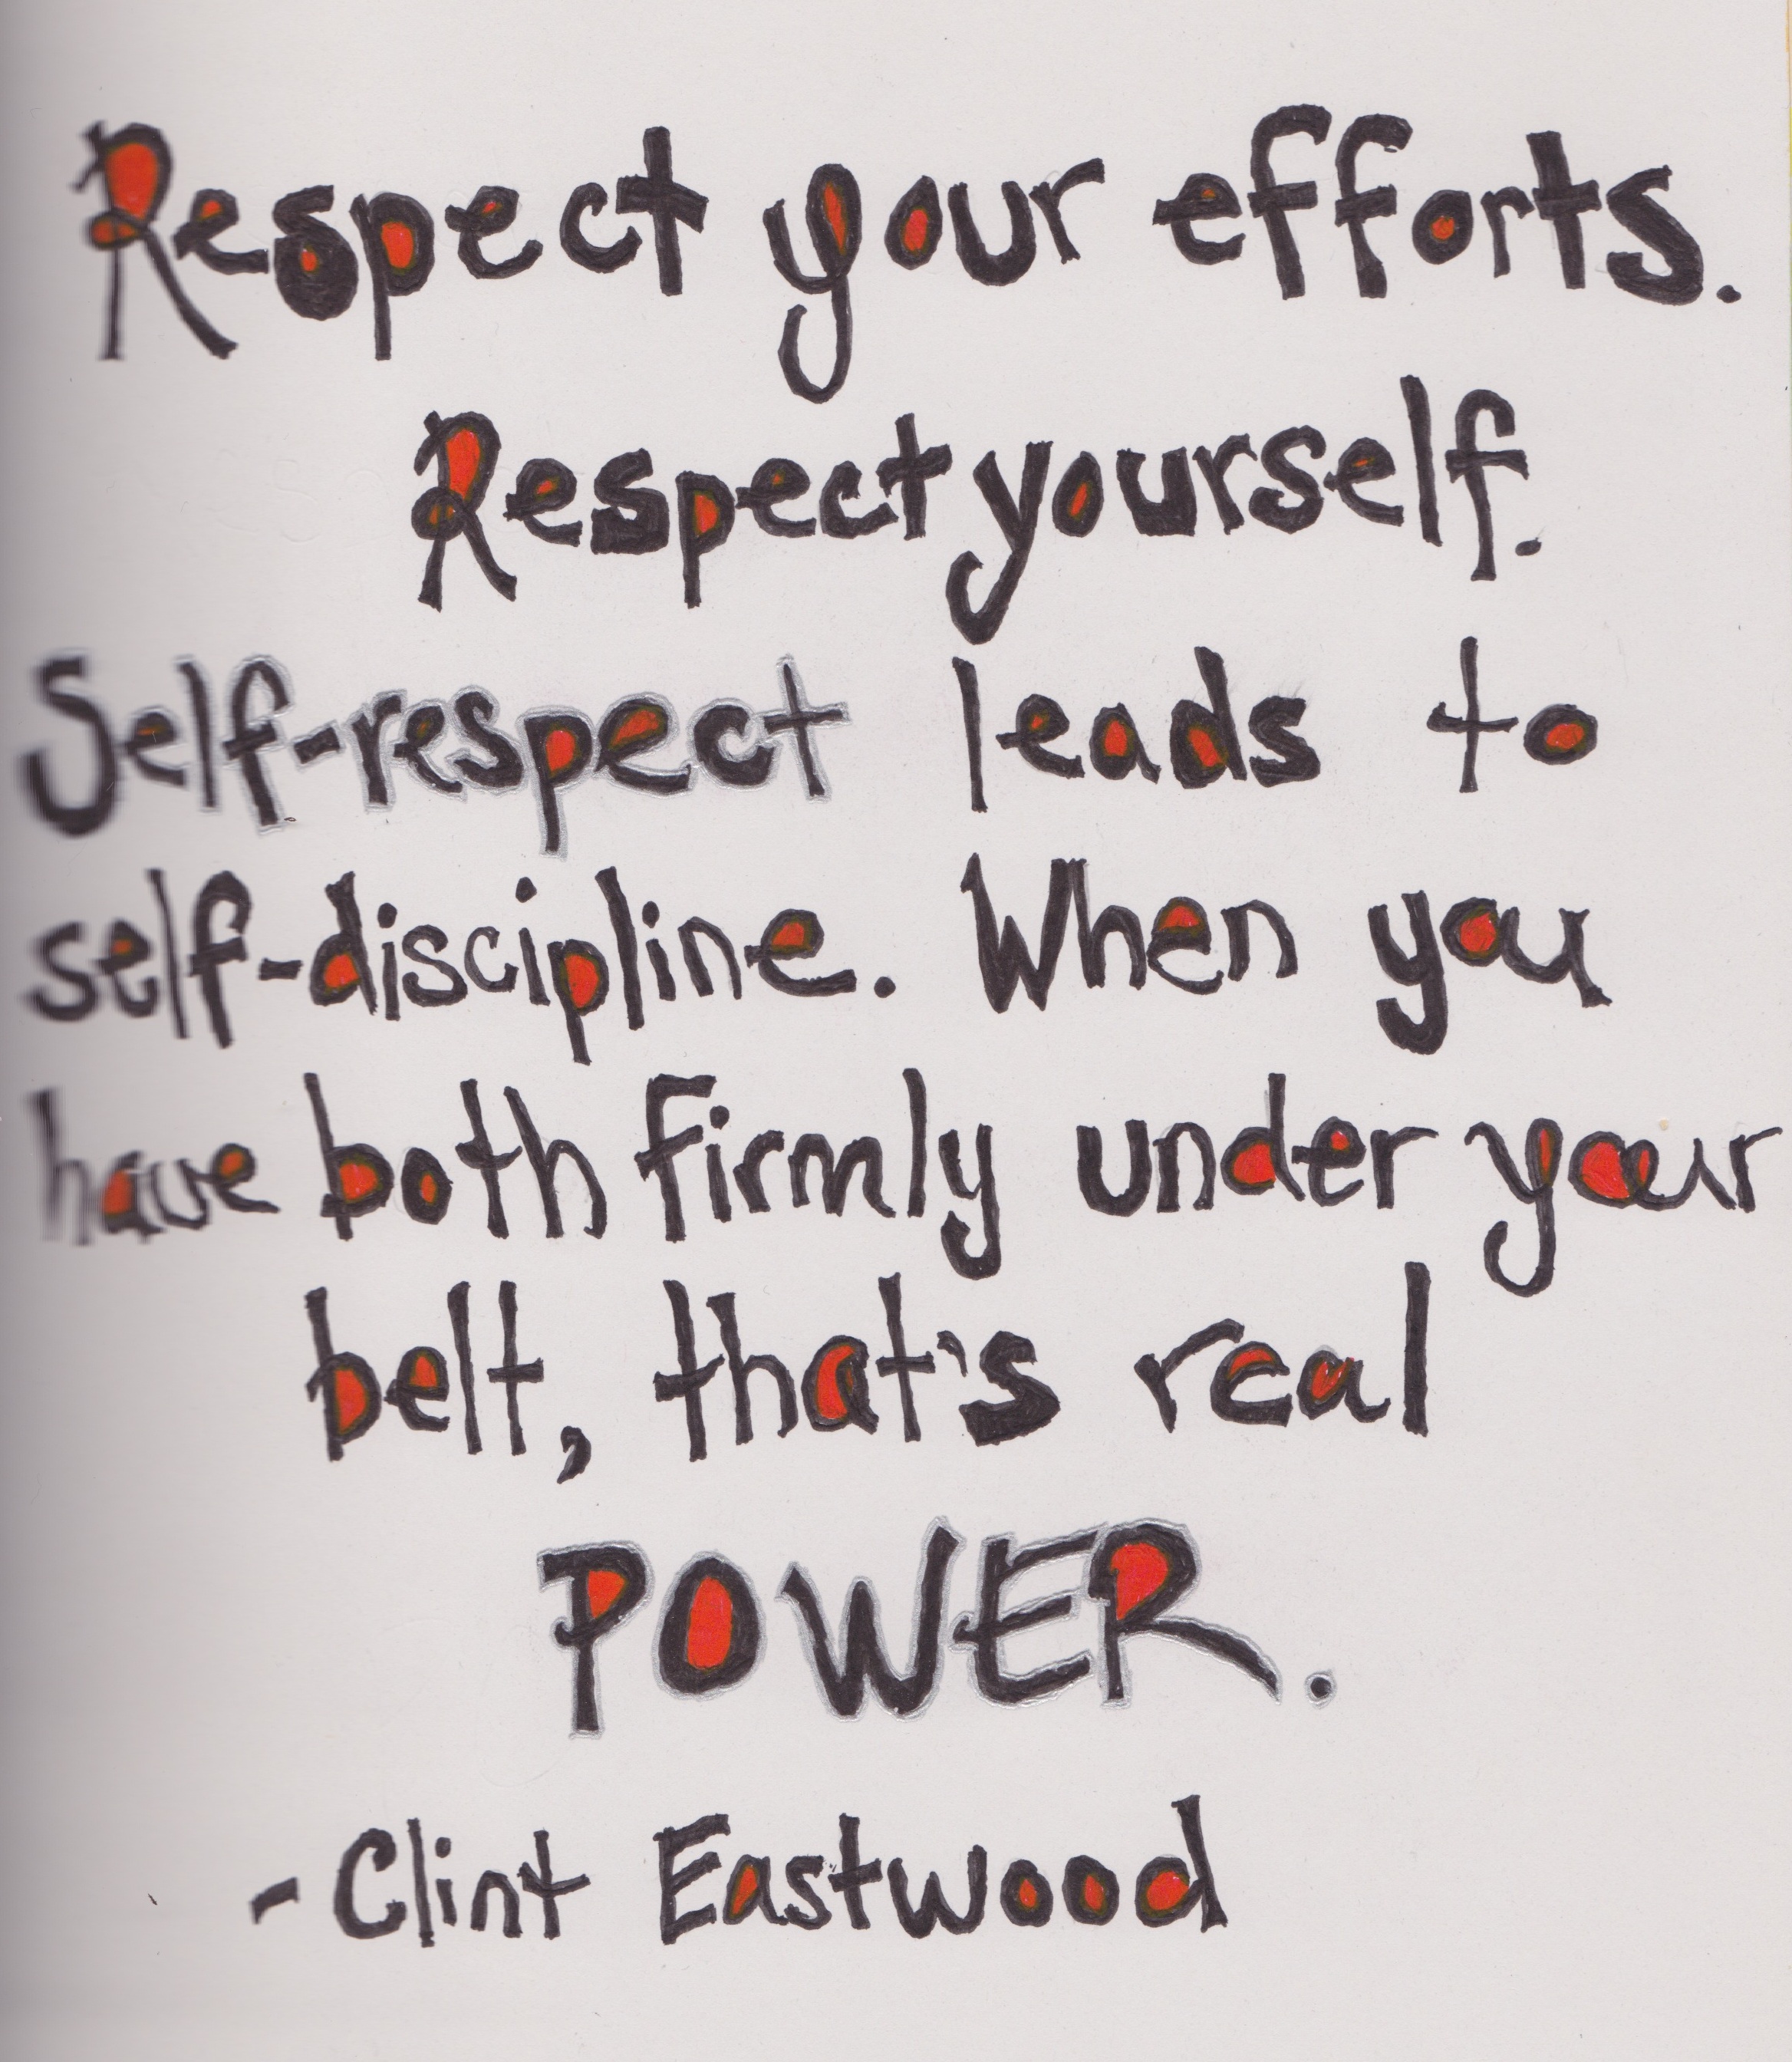 Respect your efforts.
Respect yourself.
Self-respect leads to
self-discipline. When you
have both firmly under your
belt, that's real
POWER.
- Clint Eastwood